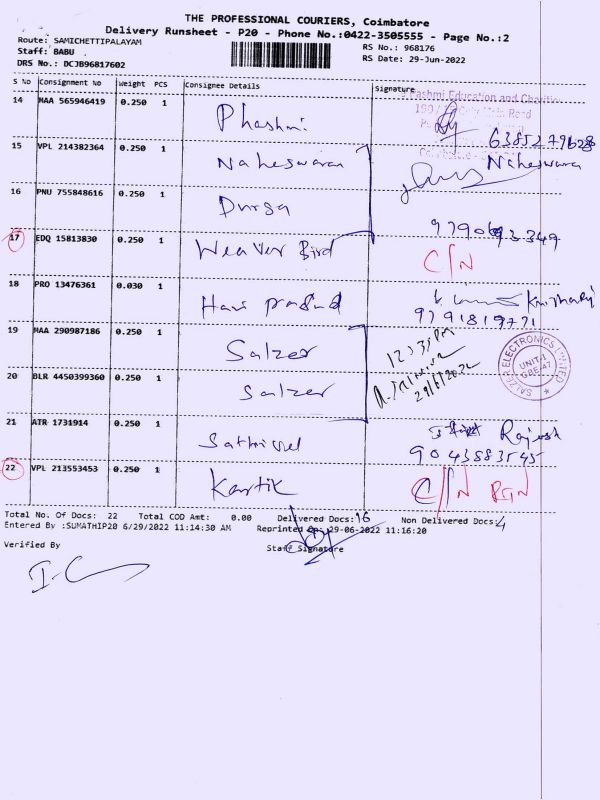 THE PROFESSIONAL COURIERS, Coimbatore
Delivery Runsheet - P20 - Phone No.:0422-3505555 - Page No.:2
Route: SAMICHETTIPALAYAM
RS No.: 968176
Staff: BABU
RS Date: 29-Jun-2022
DRS No.: DCJB96817602
S No Consignment No Weight PCS Consignee Details Signature
14 MAA 565946419 0.250 1 Phashmi
Rashmi Education and
63852
15 VPL 214382364 0.250 1 Naheswaran Naheswara
16 PNU 755848616 0.250 1 Durga
17 EDQ 15813830 0.250 1 Weaver Bird C/N
18 PRO 13476361 0.030 1 Hari prasad
9791819771
19 MAA 290987186 0.250 1 Salzer 12:35PM
29/6/2022
SALZER ELECTRONICS LIMITED
UNIT-I
CBE-47
20 BLR 4450399360 0.250 1 Salzer
21 ATR 1731914 0.250 1 Sathivel Rajesh
9043583545
22 VPL 213553453 0.250 1 Kartik C/N
Total No. Of Docs: 22 Total COD Amt: 0.00 Delivered Docs:16 Non Delivered Docs:4
Entered By :SUMATHIP20 6/29/2022 11:14:30 AM Reprinted on: 29-06-2022 11:16:20
Verified By Staff Signature